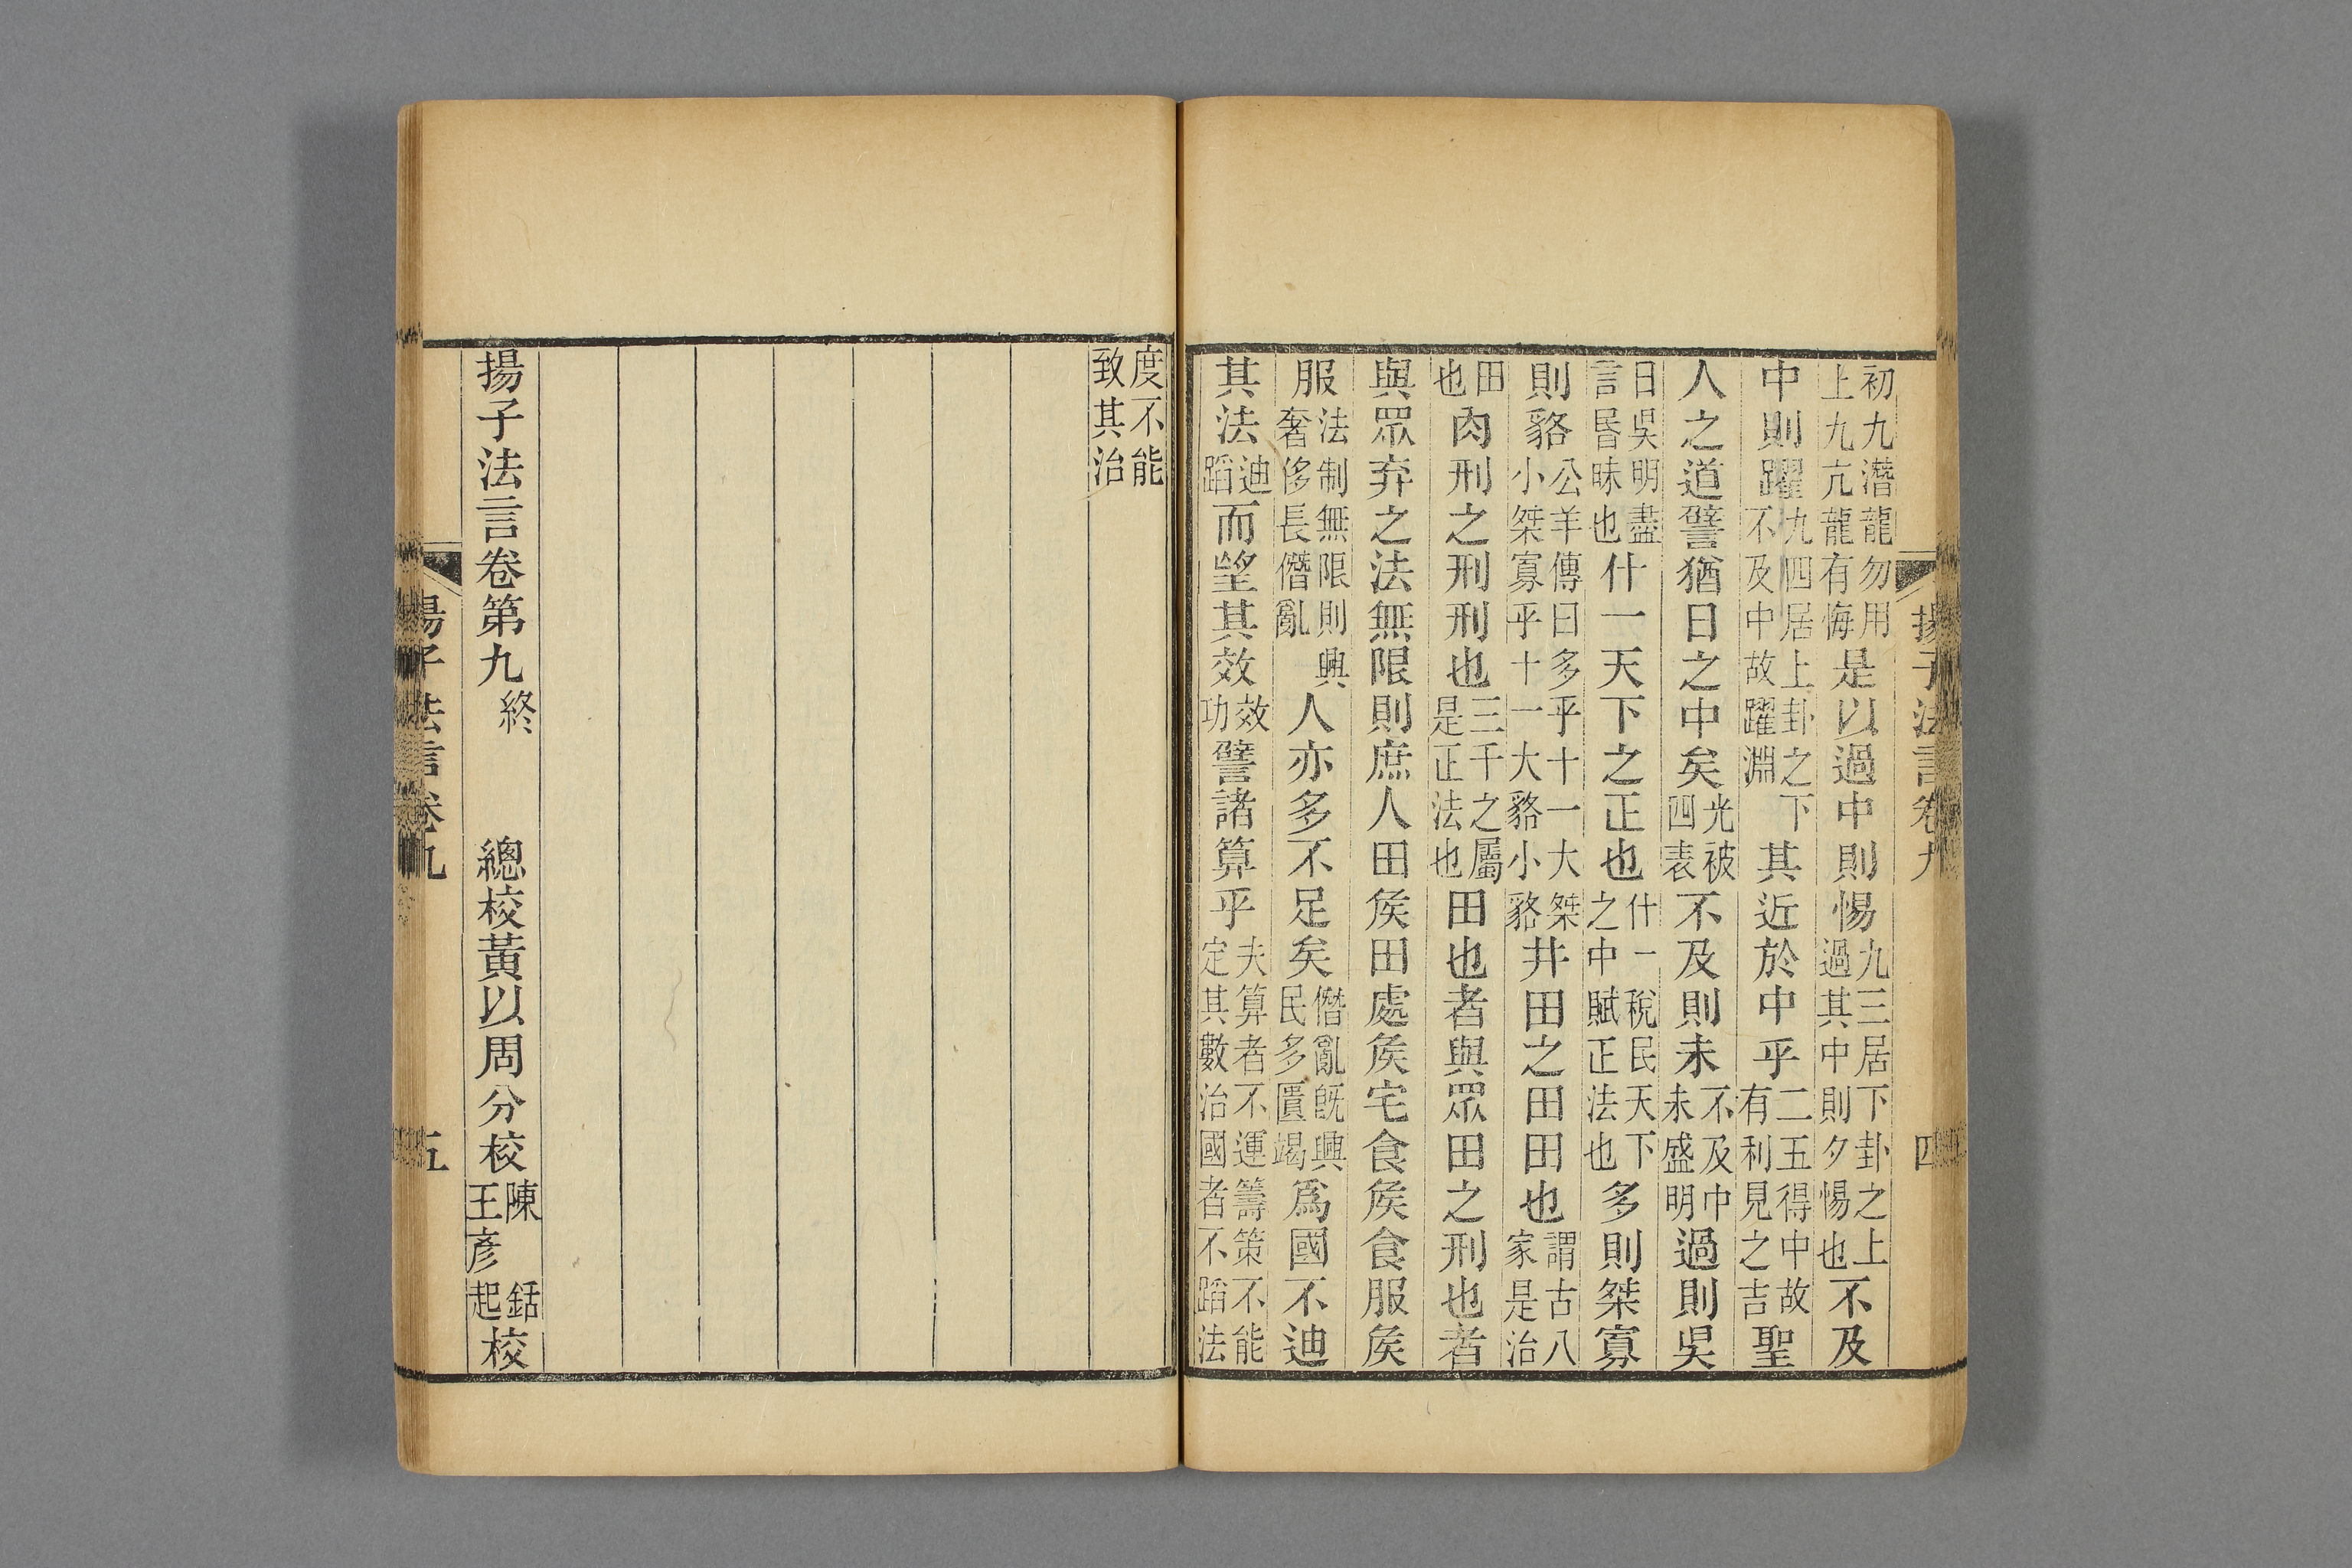 揚子法言卷九
四
初九潛龍勿用上九亢龍有悔是以過中則惕九三居下卦之上過其中則夕惕也不及
中則躍九四居上卦之下不及中故躍淵其近於中乎二五得中故有利見之吉聖
人之道譬猶日之中矣光被四表不及則未不及中未盛明過則昃
日昃明盡言昬昧也什一天下之正也什一稅民天下之中賦正法也多則桀寡
則貉公羊傳曰多乎十一大桀小桀寡乎十一大貉小貉井田之田田也謂古八家是治
田也肉刑之刑刑也三千之屬是正法也田也者與眾田之刑也者
與眾弃之法無限則庶人田矦田處矦宅食矦食服矦
服法制無限則興奢侈長僭亂人亦多不足矣僭亂旣興民多匱竭爲國不迪
其法迪蹈而望其效效功譬諸算乎夫算者不運籌策不能定其數治國者不蹈法
度不能致其治
揚子法言卷第九終　總校黃以周分校陳銛王彥起校
揚子法言卷九
五